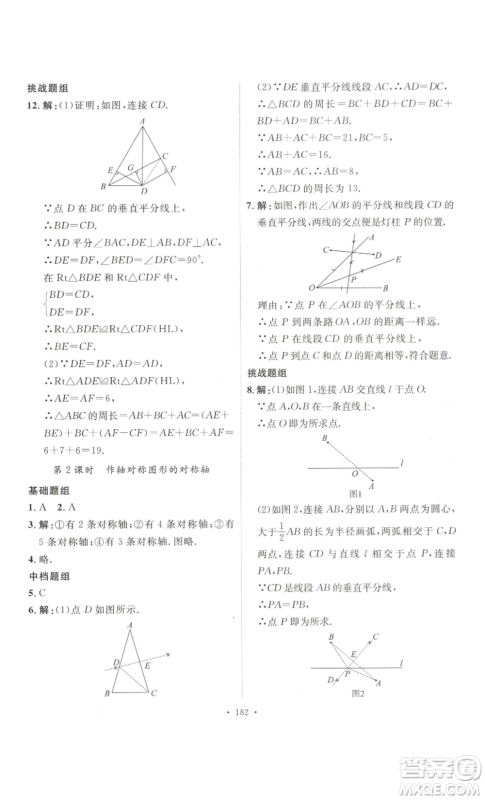 挑战题组
12.解:(1)证明:如图,连接 CD.
A
E
G
C
F
B
D
∵点 D 在 BC 的垂直平分线上,
∴BD=CD.
∵AD 平分∠BAC,DE⊥AB,DF⊥AC,
∴DE=DF,∠BED=∠CFD=90°.
在 Rt△BDE 和 Rt△CDF 中,
{BD=CD,
DE=DF,
∴Rt△BDE≌Rt△CDF(HL),
∴BE=CF.
(2)∵DE=DF,AD=AD,
∴Rt△ADE≌Rt△ADF(HL),
∴AE=AF=6,
∴△ABC 的周长=AB+BC+AC=AE+BE+BC+AC=AE+CF+BC+AC=AE+AF+BC=
6+7+6=19.
第 2 课时 作轴对称图形的对称轴
基础题组
1. A 2. A
3.解:①有 2 条对称轴;②有 4 条对称轴;③有 5 条对称轴;④有 1 条对称轴.图略.
4.略.
中档题组
5. C
6.解:(1)点 D 如图所示.
A
D
E
B
C
(2)∵DE 垂直平分线线段 AC,
∴AD=CD,
∴△BCD 的周长=BC+BD+CD=BC+BD+AD=BC+AB.
∵AB+AC+BC=21,BC=5,
∴AB+AC=16.
∵AB=AC,∴AB=8,
∴△BCD 的周长为 13.
7.解:如图,作出∠AOB 的平分线和 CD 的垂直平分线,两线的交点便是灯柱 P 的位置.
A
C
D
E
P
O
B
理由:∵点 P 在∠AOB 的平分线上,
∴点 P 到两条路 OA,OB的距离一样远.
∵点 P 在线段 CD 的垂直平分线上,
∴点 P 到点 C 和点 D 的距离相等,符合题意.
挑战题组
8.解:(1)如图 1,连接 AB 交直线 l 于点 O.
∵点 A,O,B 在一条直线上,
∴点 O 即为所求.
B
O
l
A
图1
(2)如图 2,连接 AB,分别以 A,B 两点为圆心,
大于1/2AB 的长为半径画弧,两弧交于 C,D
两点,连接 CD 与直线 l 相交于点 P,连接
PA,PB.
∵CD 是线段 AB 的垂直平分线,
∴PA=PB,
∴点 P 即为所求.
B
C
E
l
P
D
A
图2
· 182 ·